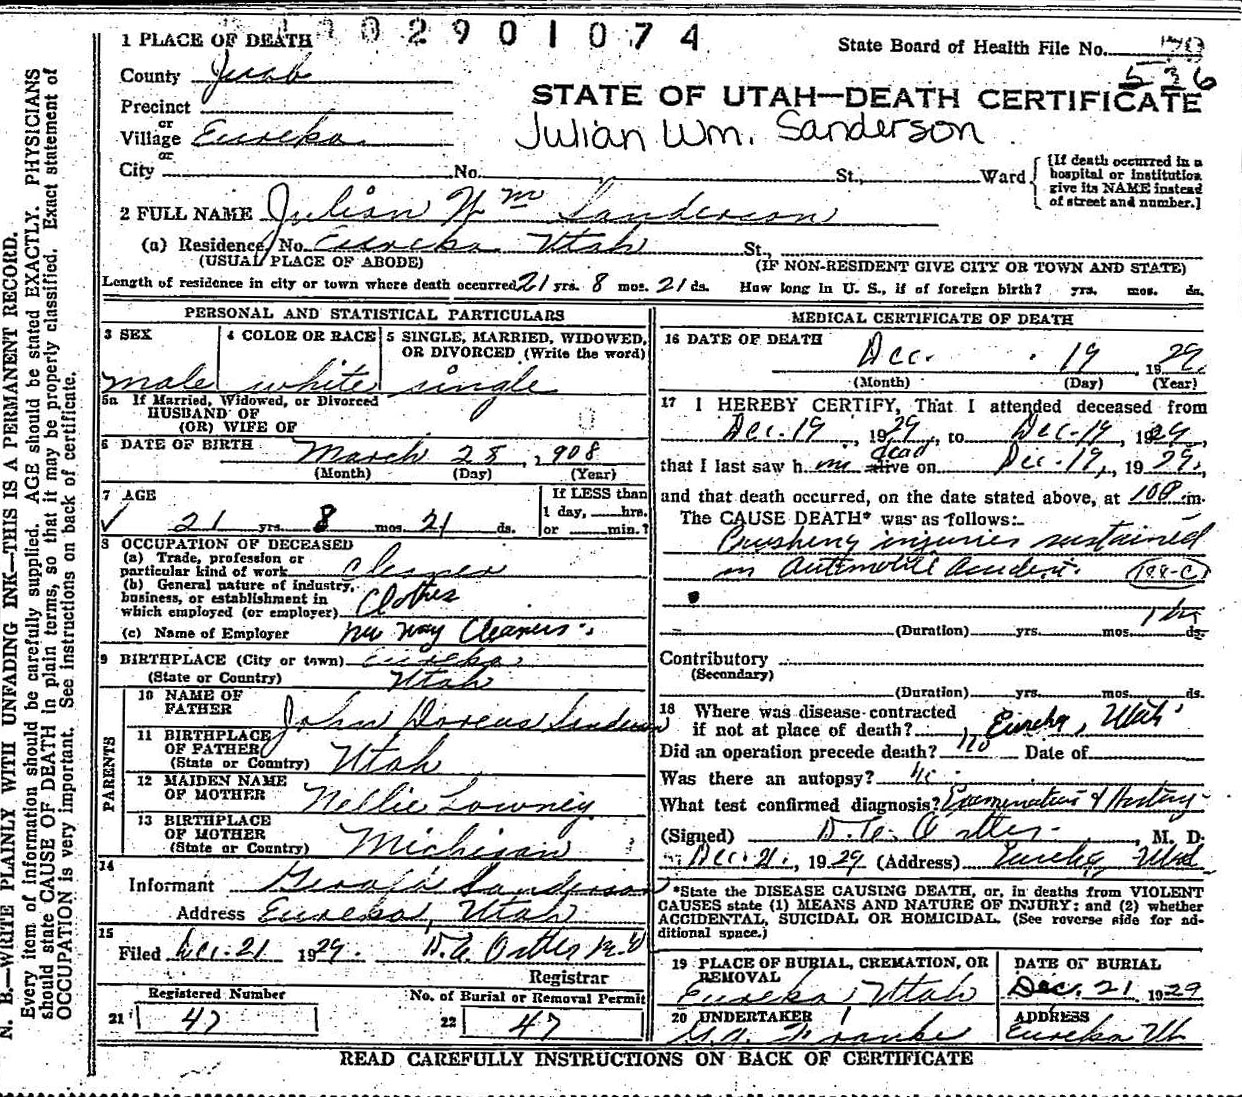 2901074
1 PLACE OF DEATH
State Board of Health File No.
536
County Juab
STATE OF UTAH—DEATH CERTIFICATE
Precinct
or
Village Eureka
Julian Wm. Sanderson
or
City No. St., Ward
[If death occurred in a hospital or institution give its NAME instead of street and number.]
2 FULL NAME Julian Wm Sanderson
(a) Residence, No. Eureka Utah St.,
(USUAL PLACE OF ABODE) (IF NON-RESIDENT GIVE CITY OR TOWN AND STATE)
Length of residence in city or town where death occurred 21 yrs. 8 mos. 21 ds. How long in U. S., if of foreign birth? yrs. mos. ds.
PERSONAL AND STATISTICAL PARTICULARS
3 SEX
male
4 COLOR OR RACE
white
5 SINGLE, MARRIED, WIDOWED, OR DIVORCED (Write the word)
single
5a If Married, Widowed, or Divorced
HUSBAND OF
(OR) WIFE OF
6 DATE OF BIRTH March 28, 1908
(Month) (Day) (Year)
7 AGE
21 yrs. 8 mos. 21 ds.
If LESS than
1 day, hrs.
or min.?
8 OCCUPATION OF DECEASED
(a) Trade, profession or
particular kind of work cleaner
(b) General nature of industry,
business, or establishment in
which employed (or employer) Clothes
(c) Name of Employer Nu Way Cleaners
9 BIRTHPLACE (City or town) Eureka
(State or Country) Utah
PARENTS
10 NAME OF
FATHER John Dorcus Sanderson
11 BIRTHPLACE
OF FATHER
(State or Country) Utah
12 MAIDEN NAME
OF MOTHER Nellie Lowney
13 BIRTHPLACE
OF MOTHER
(State or Country) Michigan
14
Informant Gerald Sanderson
Address Eureka, Utah
15
Filed Dec. 21 1929. Registrar
Registered Number
21 47
No. of Burial or Removal Permit
22 47
MEDICAL CERTIFICATE OF DEATH
16 DATE OF DEATH
Dec. 19, 1929
(Month) (Day) (Year)
17 I HEREBY CERTIFY, That I attended deceased from
Dec. 19, 1929, to Dec. 19, 1929,
that I last saw him dead alive on Dec. 19, 1929,
and that death occurred, on the date stated above, at m.
The CAUSE DEATH* was as follows:
Crushing injuries sustained
in Automobile Accident. 188-C
(Duration) yrs. mos. 1 hr ds.
Contributory
(Secondary)
(Duration) yrs. mos. ds.
18 Where was disease contracted
if not at place of death? Eureka, Utah
Did an operation precede death? no Date of
Was there an autopsy? no
What test confirmed diagnosis? Examination & History
(Signed) M. D.
Dec. 21, 1929 (Address) Eureka Utah
*State the DISEASE CAUSING DEATH, or, in deaths from VIOLENT
CAUSES state (1) MEANS AND NATURE OF INJURY; and (2) whether
ACCIDENTAL, SUICIDAL OR HOMICIDAL. (See reverse side for additional space.)
19 PLACE OF BURIAL, CREMATION, OR
REMOVAL
Eureka, Utah
DATE OF BURIAL
Dec. 21 1929
20 UNDERTAKER
ADDRESS
Eureka Ut
READ CAREFULLY INSTRUCTIONS ON BACK OF CERTIFICATE
N. B.—WRITE PLAINLY WITH UNFADING INK—THIS IS A PERMANENT RECORD.
Every item of information should be carefully supplied. AGE should be stated EXACTLY. PHYSICIANS
should state CAUSE OF DEATH in plain terms, so that it may be properly classified. Exact statement of
OCCUPATION is very important. See instructions on back of certificate.